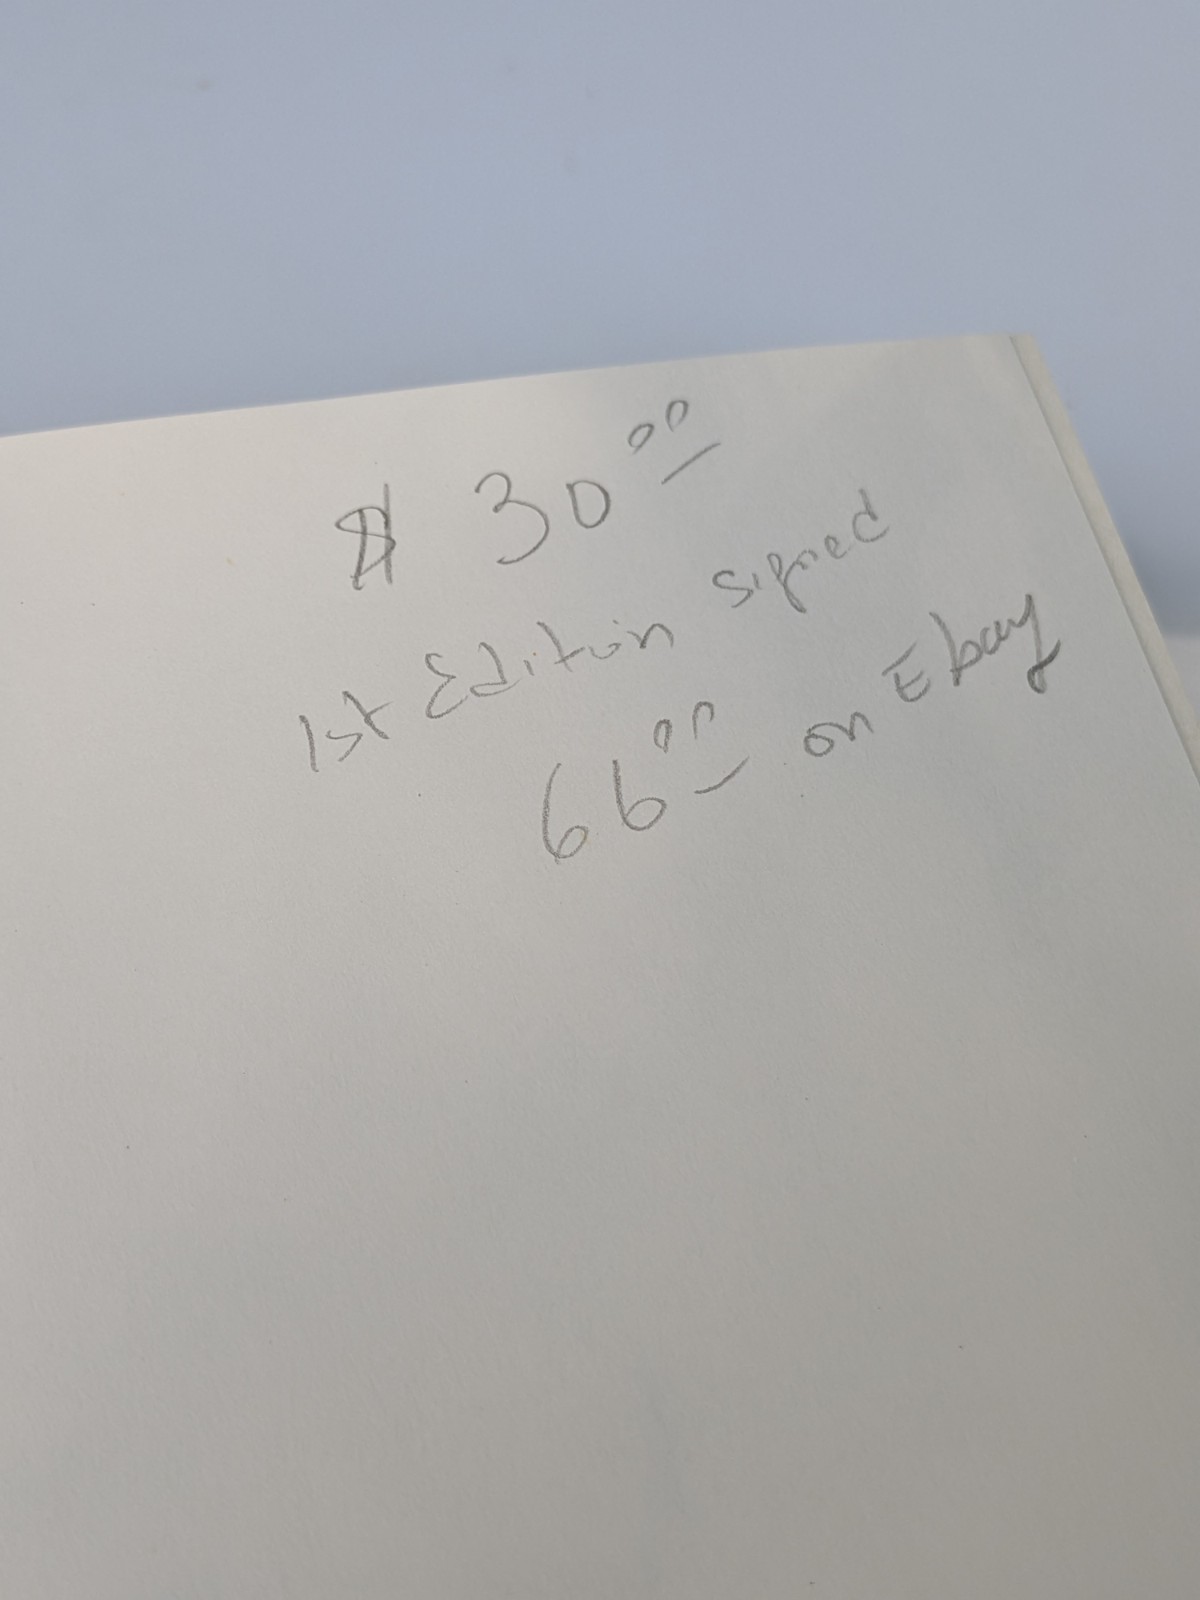 $ 30.00
1st Edition signed
66.00 on Ebay